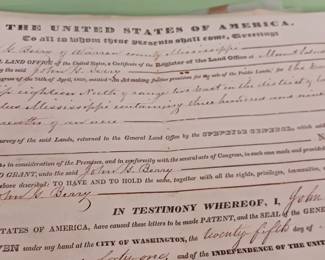 THE UNITED STATES OF AMERICA.
To all to whom these Presents shall come, Greeting:
G. Berry of Warren county Mississippi
LAND OFFICE of the United States, a Certificate of the Register of the Land Office at Mount Salus
by the said John G. Berry
Congress of the 24th of April, 1820, entitled "An Act making further provision for the sale of the Public Lands," for the
eighteen North of range two East in the district of
Mississippi containing three hundred and nine
of an acre
Survey of the said Lands, returned to the General Land Office by the SURVEYOR GENERAL, which said
in consideration of the Premises, and in conformity with the several acts of Congress, in such case made and provided
GRANT, unto the said John G. Berry
above described: TO HAVE AND TO HOLD the same, together with all the rights, privileges, immunities,
John G. Berry
IN TESTIMONY WHEREOF, I, John
STATES OF AMERICA, have caused these letters to be made PATENT, and the SEAL of the GENERAL
GIVEN under my hand at the CITY OF WASHINGTON, the twenty fifth day of
forty one; and of the INDEPENDENCE OF THE UNITED